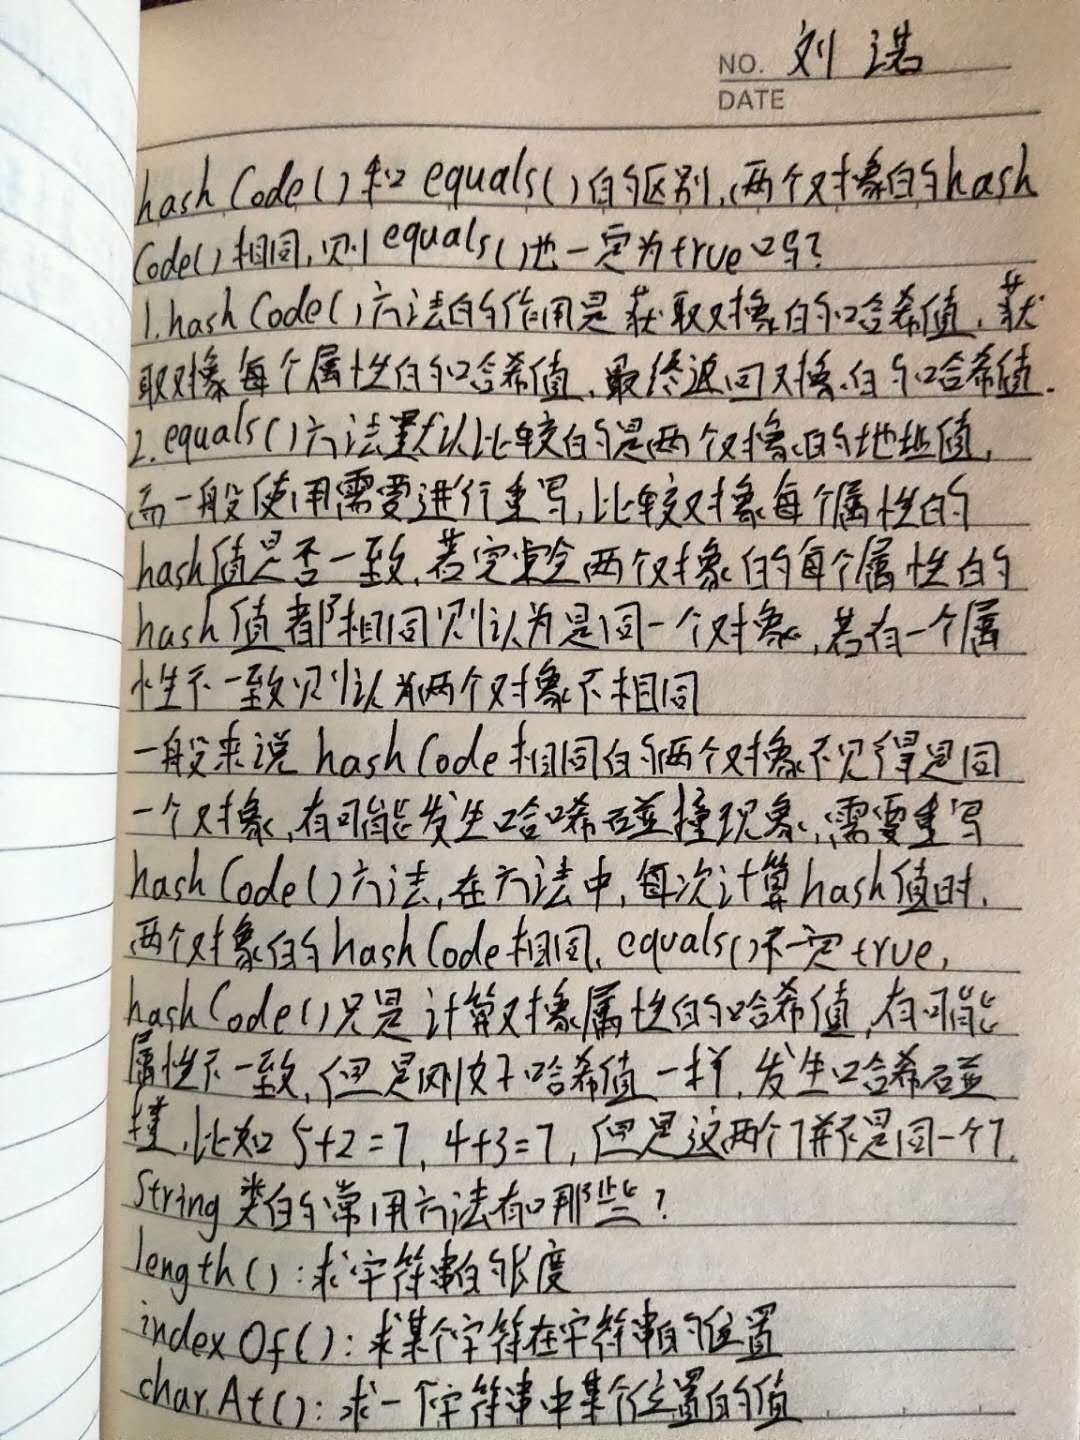 NO. 刘诺
DATE
hashCode()和equals()的区别,两个对象的hash
Code()相同,则equals()也一定为true吗?
1.hashCode()方法的作用是获取对象的哈希值,获
取对象每个属性的哈希值,最终返回对象的哈希值.
2.equals()方法默认比较的是两个对象的地址值,
而一般使用需要进行重写,比较对象每个属性的
hash值是否一致,若完全两个对象的每个属性的
hash值都相同则认为是同一个对象,若有一个属
性不一致则认为两个对象不相同
一般来说hashCode相同的两个对象不见得是同
一个对象,有可能发生哈唏碰撞现象,需要重写
hashCode()方法,在方法中,每次计算hash值时,
两个对象的hashCode相同,equals()不一定true,
hashCode()只是计算对象属性的哈希值,有可能
属性不一致,但是刚好哈希值一样,发生哈希碰
撞,比如5+2=7,4+3=7,但是这两个7并不是同一个7.
String类的常用方法有哪些?
length():求字符串的长度
indexOf():求某个字符在字符串的位置
charAt():求一个字符串中某个位置的值